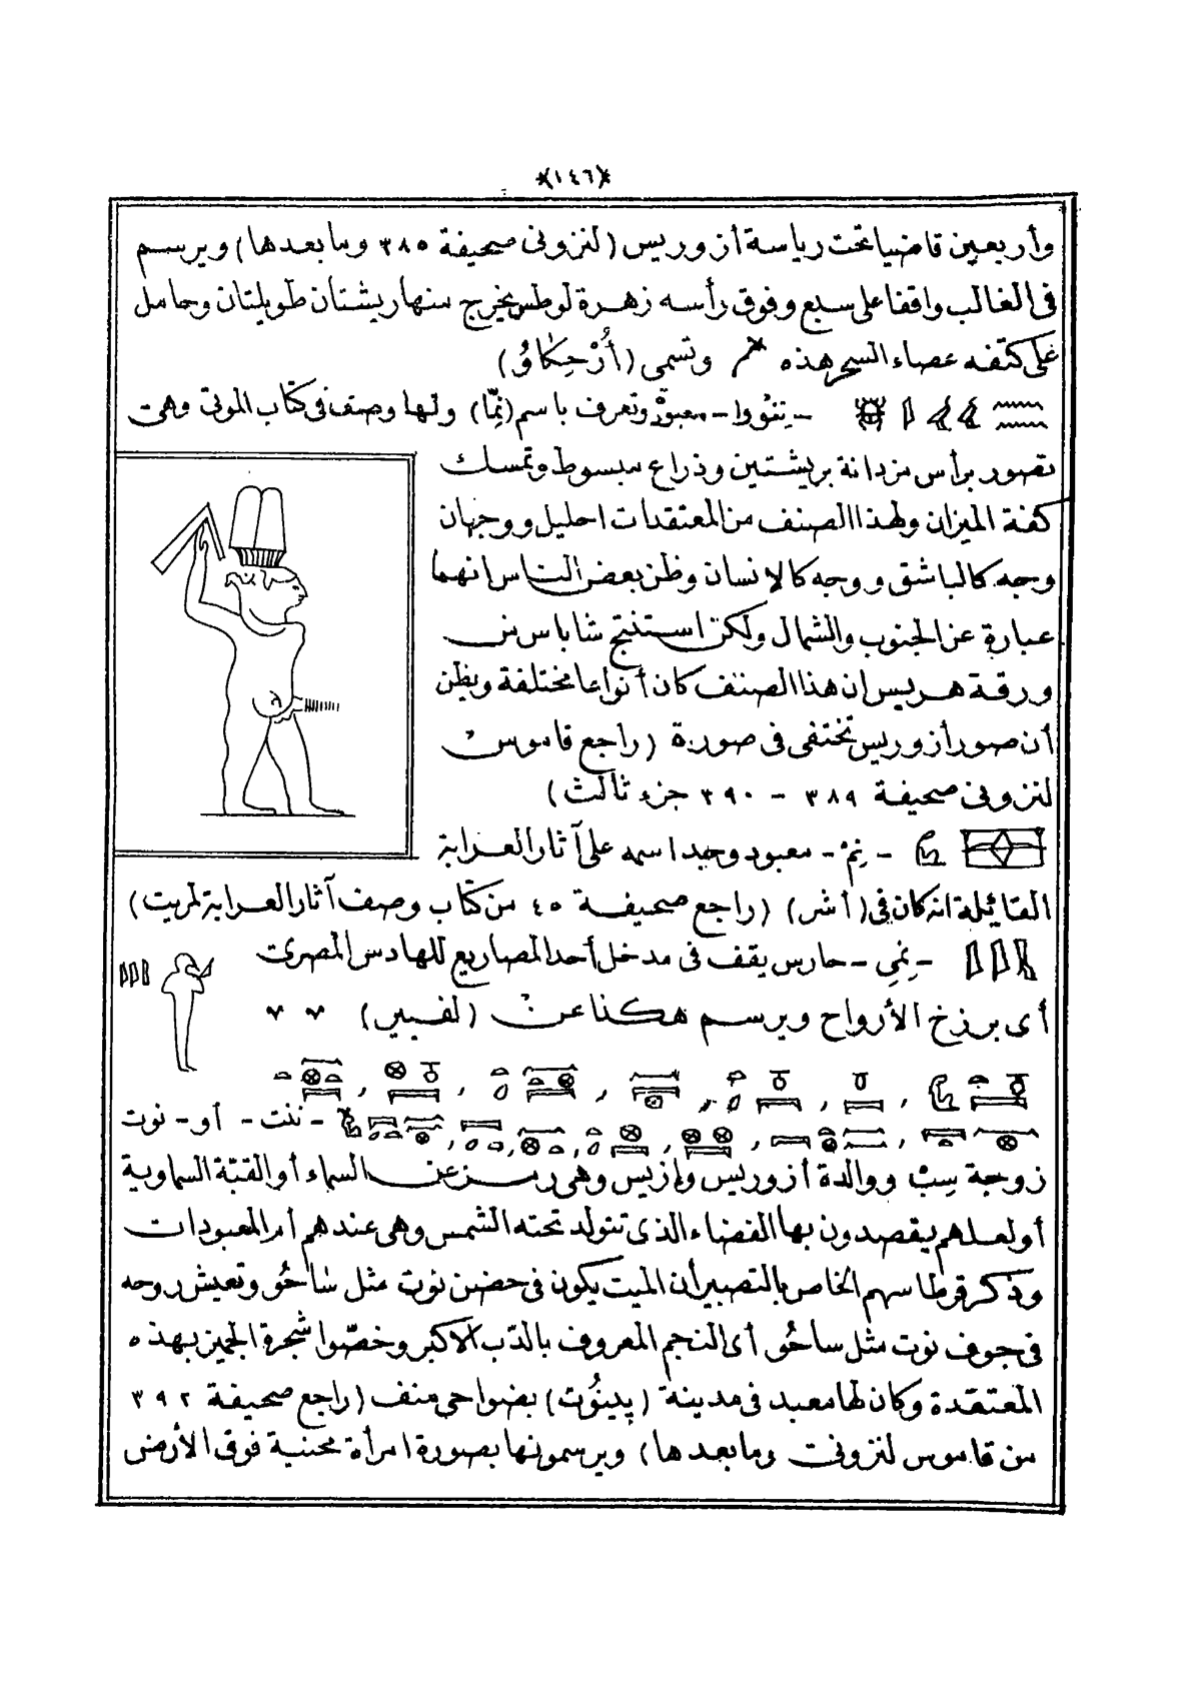 *(١٤٦)*
وأربعين قاضيا تحت رياسة أزوريس (لنزونى صحيفة ٣٨٥ وما بعدها) ويرسم
فى الغالب واقفا على سبع وفوق رأسه زهرة لوطس يخرج منها ريشتان طويلتان وحامل
على كتفه عصاء السحر هذه وتسمى (أُرْحِكَاوُ)
- نِنْوُوا - معبودة وتعرف باسم (نِمّا) ولها وصف فى كتاب الموتى وهى
تصور برأس مزدانة بريشتين وذراع مبسوط وتمسك
كفة الميزان ولهذا الصنف من المعتقدات احليل ووجهان
وجه كالباشق ووجه كالانسان وظن بعض الناس انهما
عبارة عن الجنوب والشمال ولكن استنتج شاباس من
ورقة هريس ان هذا الصنف كان أنواعا مختلفة ويظن
أن صور أزوريس تختفى فى صورة (راجع قاموس
لنزونى صحيفة ٣٨٩ - ٣٩٠ جزء ثالث)
- نِمْ - معبود وجد اسمه على آثار العرابة
القائلة انه كان فى (أشر) (راجع صحيفة ٤٥ من كتاب وصف آثار العرابة لمريت)
- نِمِي - حارس يقف فى مدخل أحد المصاريع للهادس المصرى
أى برزخ الأرواح ويرسم هكذا عن (لفبير)
- ننت - أو - نوت
زوجة سِبْ ووالدة أزوريس وازيس وهى رمز عن السماء أو القبّة السماوية
أو لعلهم يقصدون بها الفضاء الذى تتولد تحته الشمس وهى عندهم أم المعبودات
وذكر قرطاسهم الخاص بالتصبير أن الميت يكون فى حضن نوت مثل سَاحُو وتعيش روحه
فى جوف نوت مثل ساحُو أى النجم المعروف بالدّب الاكبر وخصّوا شجرة الجميز بهذه
المعتقدة وكان لها معبد فى مدينة (پِينُوت) بضواحى منف (راجع صحيفة ٣٩٢
من قاموس لنزونى وما بعدها) ويرسمونها بصورة امرأة محنية فوق الأرض